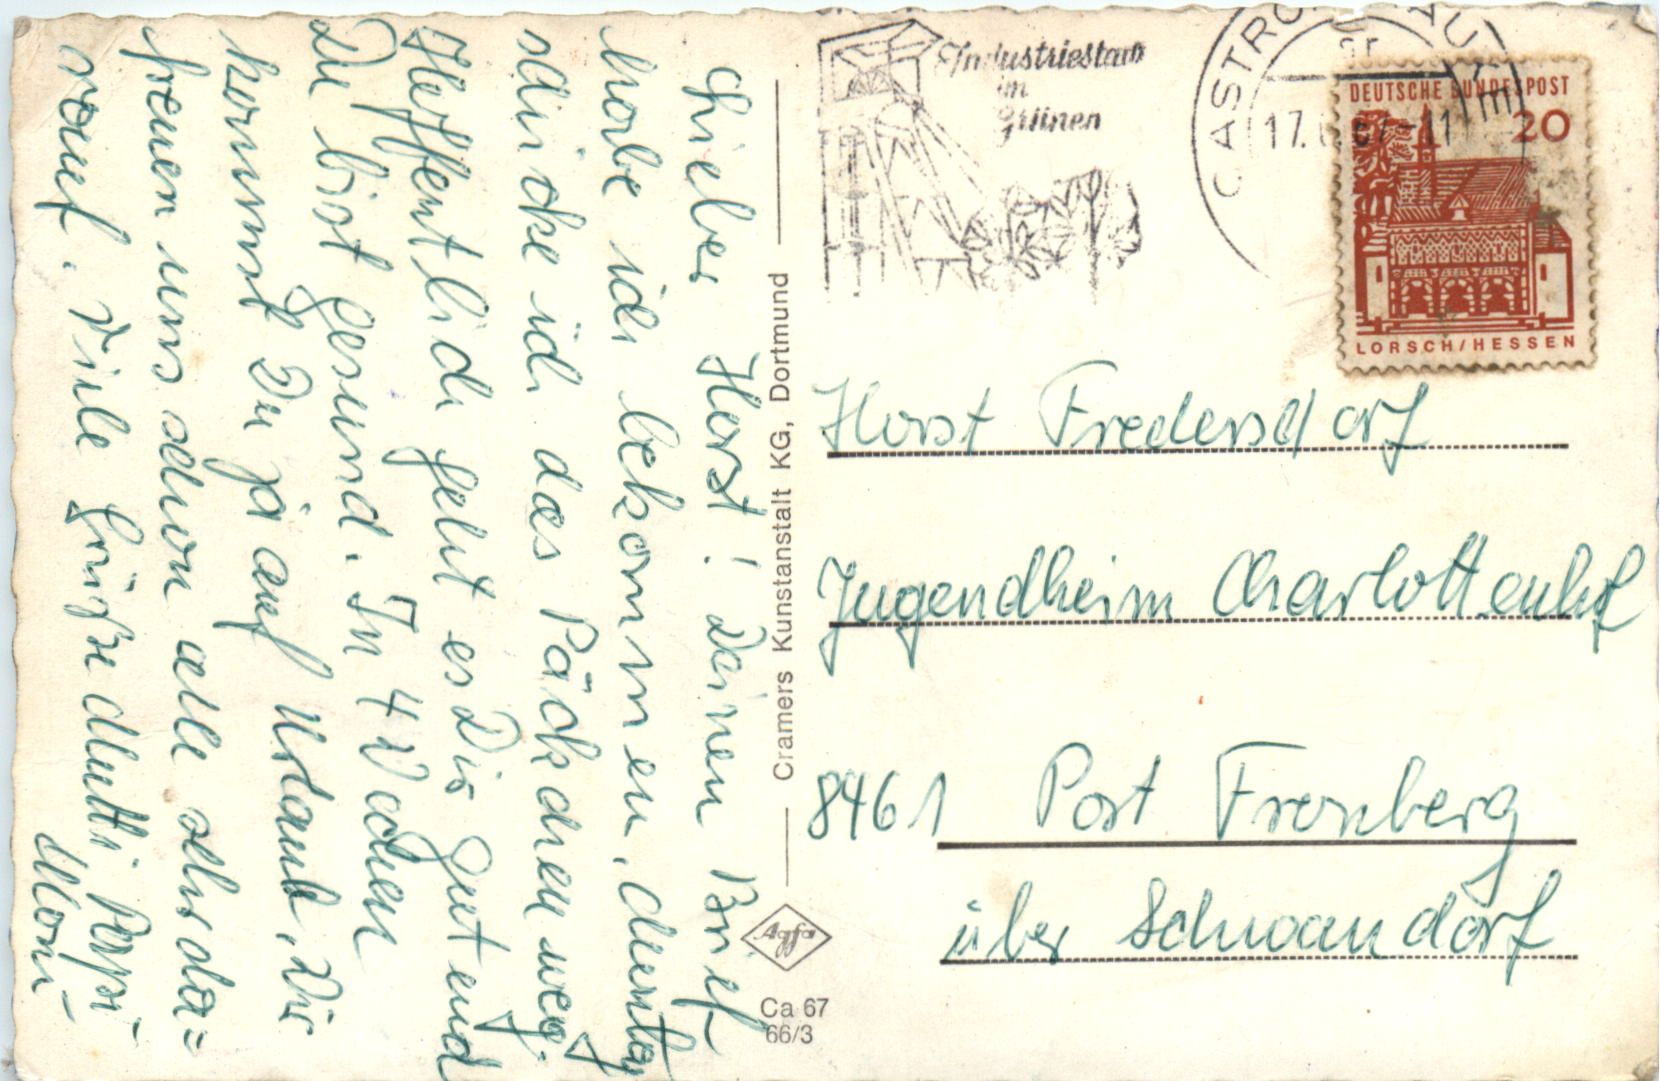 Lieber Horst! Deinen Brief
habe ich bekommen, dienstag
schicke ich das Päckchen weg.
Hoffentlich geht es Dir gut und
Du bist gesund. In 4 Wochen
kommst Du ja auf Urlaub. Wir
freuen uns schon alle sehr da=
rauf. Viele Grüße Mutti Pappi
Moni
Cramers Kunstanstalt KG, Dortmund
Agfa
Ca 67
66/3
Industriestadt
im
Grünen
CASTROP RAUXEL
17. 67-11
DEUTSCHE BUNDESPOST
20
LORSCH/HESSEN
Horst Fredersdorf
Jugendheim Charlottenhof
8461 Post Fronberg
über Schwandorf